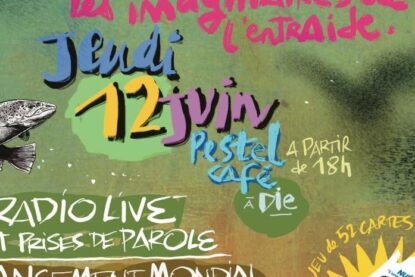 les imaginaires de
l'entraide.
Jeudi
12 juin
Pestel
café
à Die
A PARTIR
de 18h
RADIO LIVE
T PRISES DE PAROLE
ANCEMENT MONDIAL
JEU DE 52 CARTES